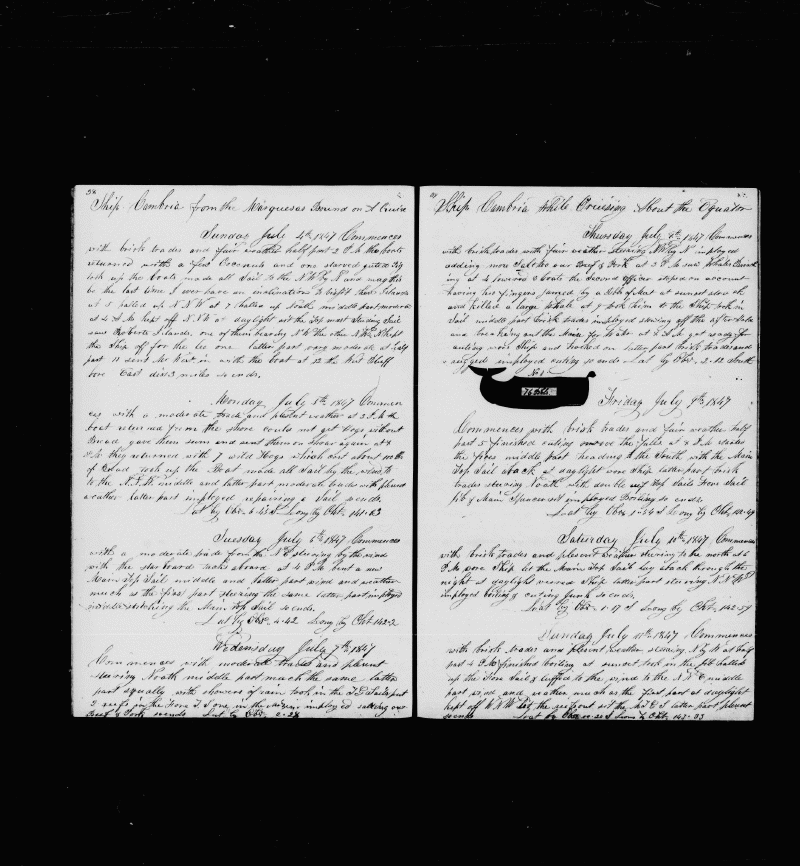 Ship Cambria from the Marquesas Bound on A Cruise
Sunday July 4th 1847 Commences
with brisk trades and fair weather half past 2 P.M the boats
returned with a few Cocoanuts and one starved Pig
took up the boats made all Sail to the N.W by N and
be the last time I ever have an inclination to visit these Islands
at 5 N N W at 7 up South middle part moderate
at 4 A M kept off N.N.W at daylight set the Top mast Studding Sail
saw Roberts Islands, one of them bearing N.W the other kept
the Ship off for the lee one latter part very moderate at half
part 11 sent Mr West in with the boat at 12 the West Bluff
bore East dis 3 miles so ends.
Monday July 5th 1847 Commen
ces with a moderate trade and plesent weather at 3 P.M the
boat returned from the shore could not get hogs without
Bread gave them some and sent them on shoar again at 8
P.M they returned with 7 wild Hogs which cost about
of Bread took up the Boat made all Sail by the wind
to the N.N.W middle and latter part moderate trades with plesent
weather latter part imployed repairing a Sail so ends.
Lat by Obs 6-43 S Long by Chr. 141-03
Tuesday July 6th 1847 Commences
with a moderate trade from the N.E steering by the wind
with the starboard tacks aboard at 4 P.M bent a new
Main Top Sail middle and latter part wind and weather
much as the first part steering the same latter part imployed
middle stitching the Main Top Sail so ends.
Lat by Obs. 4-42 Long by Chr 142-2
Wednesday July 7th 1847
Commences with moderate trades and plesent
steering North middle part much the same latter
part squally with showers of rain took in the
2 reefs in the Fore T.S one in the Main imployed salting our
Beef & Pork so ends Lat by Obs. 2-28
Ship Cambria While Cruising About the Equator
Thursday July 8th 1847 Commences
with brisk trades with fair weather steering N.W by N imployed
adding more Salt to our Beef & Pork at 3 P.M saw Whales
ing at 4 lowered 3 boats the Second officer stoped on account
having his fingers jammed by a at sunset struck
and killed 1 large Whale at 7 took him to the Ship took in
Sail middle part brisk trades imployed
and breaking out the Main for at
cutting wore Ship and hooked on latter part brisk trades and
rugged imployed cuting so ends Lat by Obs. 2-12 South
No 1
76 bbls.
Friday July 9th 1847
Commences with brisk trades and fair weather half
past 5 finished cuting the falls at 8 P.M started
the fires middle part heading to the South with the Main
Top Sail aback at daylight wore Ship latter part brisk
trades steering North with double reef Top Sails Fore Sail
jib & Main Spencer set imployed Boiling so ends.
Lat by Obs 1-54 S Long by Chr,
Saturday July 10th 1847 Commences
with brisk trades and plesent weather steering to the north at 6
P.M wore Ship let the Main Top Sail lay aback through the
night at daylight weared Ship latter part steering
imployed boiling & cuting junk so ends.
Lat by Obs. 1-17 S Long by Chr. 142-57
Sunday July 11th 1847 Commences
with brisk trades and plesent Weather steering N by W at half
past 4 P.M finished boiling at sunset took in the jib hauled
up the Fore Sail & luffed to the wind to the N.E middle
part wind and weather much as the first part at daylight
kept off W.N.W set the latter part plesent
so ends Lat by Obs Long by Chr. 143-03